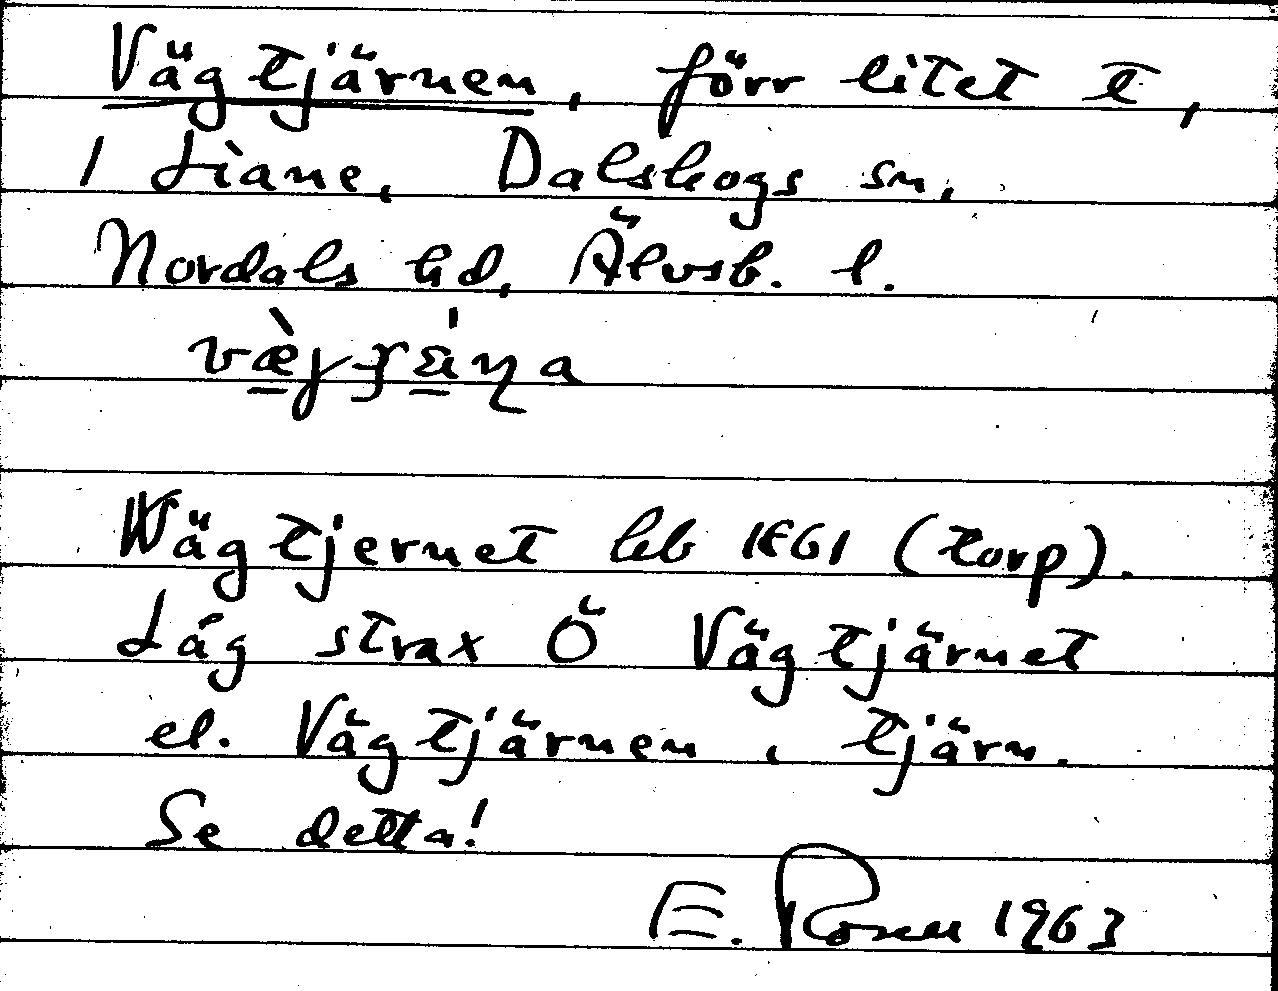 Vägtjärnen, förr litet t,
1 Liane, Dalskogs sn,
Nordals hd, Älvsb. l.
Wägtjernet hb 1861 (torp).
Låg strax Ö Vägtjärnet
el. Vägtjärnen, tjärn.
Se detta!
E. 1963